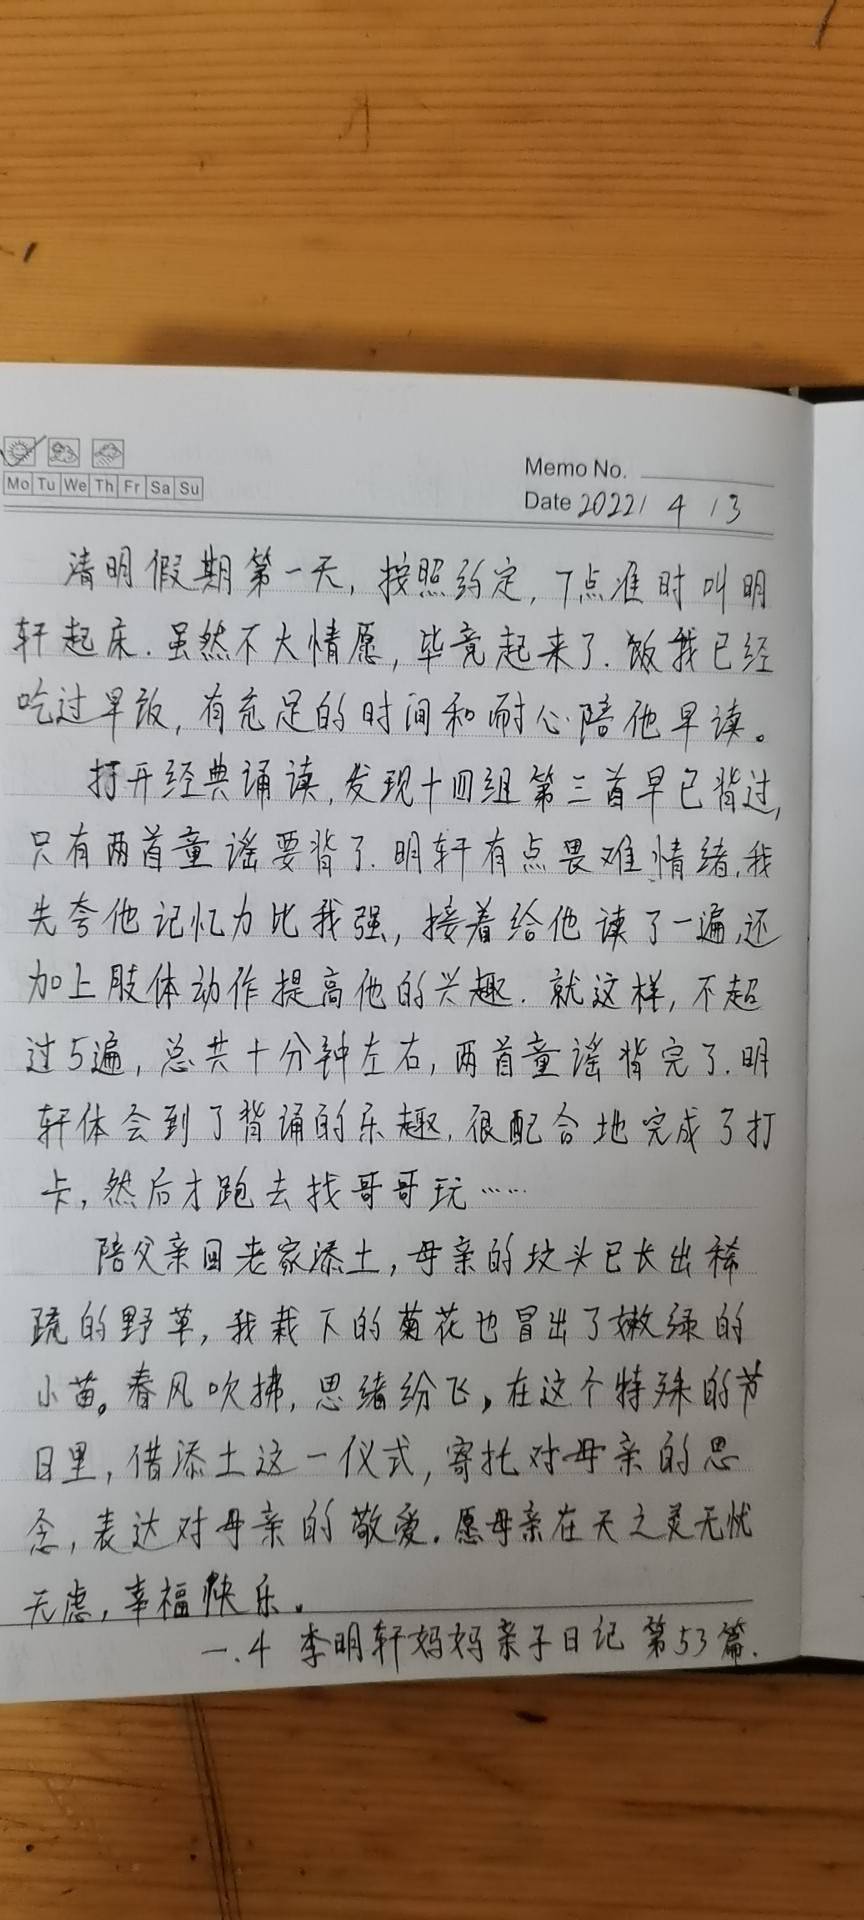 Memo No.
Mo Tu We Th Fr Sa Su
Date 2022/ 4 / 3
清明假期第一天, 按照约定, 7点准时叫明
轩起床. 虽然不大情愿, 毕竟起来了. 饭我已经
吃过早饭, 有充足的时间和耐心陪他早读。
打开经典诵读, 发现十四组第三首早已背过,
只有两首童谣要背了. 明轩有点畏难情绪, 我
先夸他记忆力比我强, 接着给他读了一遍, 还
加上肢体动作提高他的兴趣. 就这样, 不超
过5遍, 总共十分钟左右, 两首童谣背完了. 明
轩体会到了背诵的乐趣, 很配合地完成了打
卡, 然后才跑去找哥哥玩……
陪父亲回老家添土, 母亲的坟头已长出稀
疏的野草, 我栽下的菊花也冒出了嫩绿的
小苗。春风吹拂, 思绪纷飞, 在这个特殊的节
日里, 借添土这一仪式, 寄托对母亲的思
念, 表达对母亲的敬爱. 愿母亲在天之灵无忧
无虑, 幸福快乐。
一.4 李明轩妈妈亲子日记 第53篇.